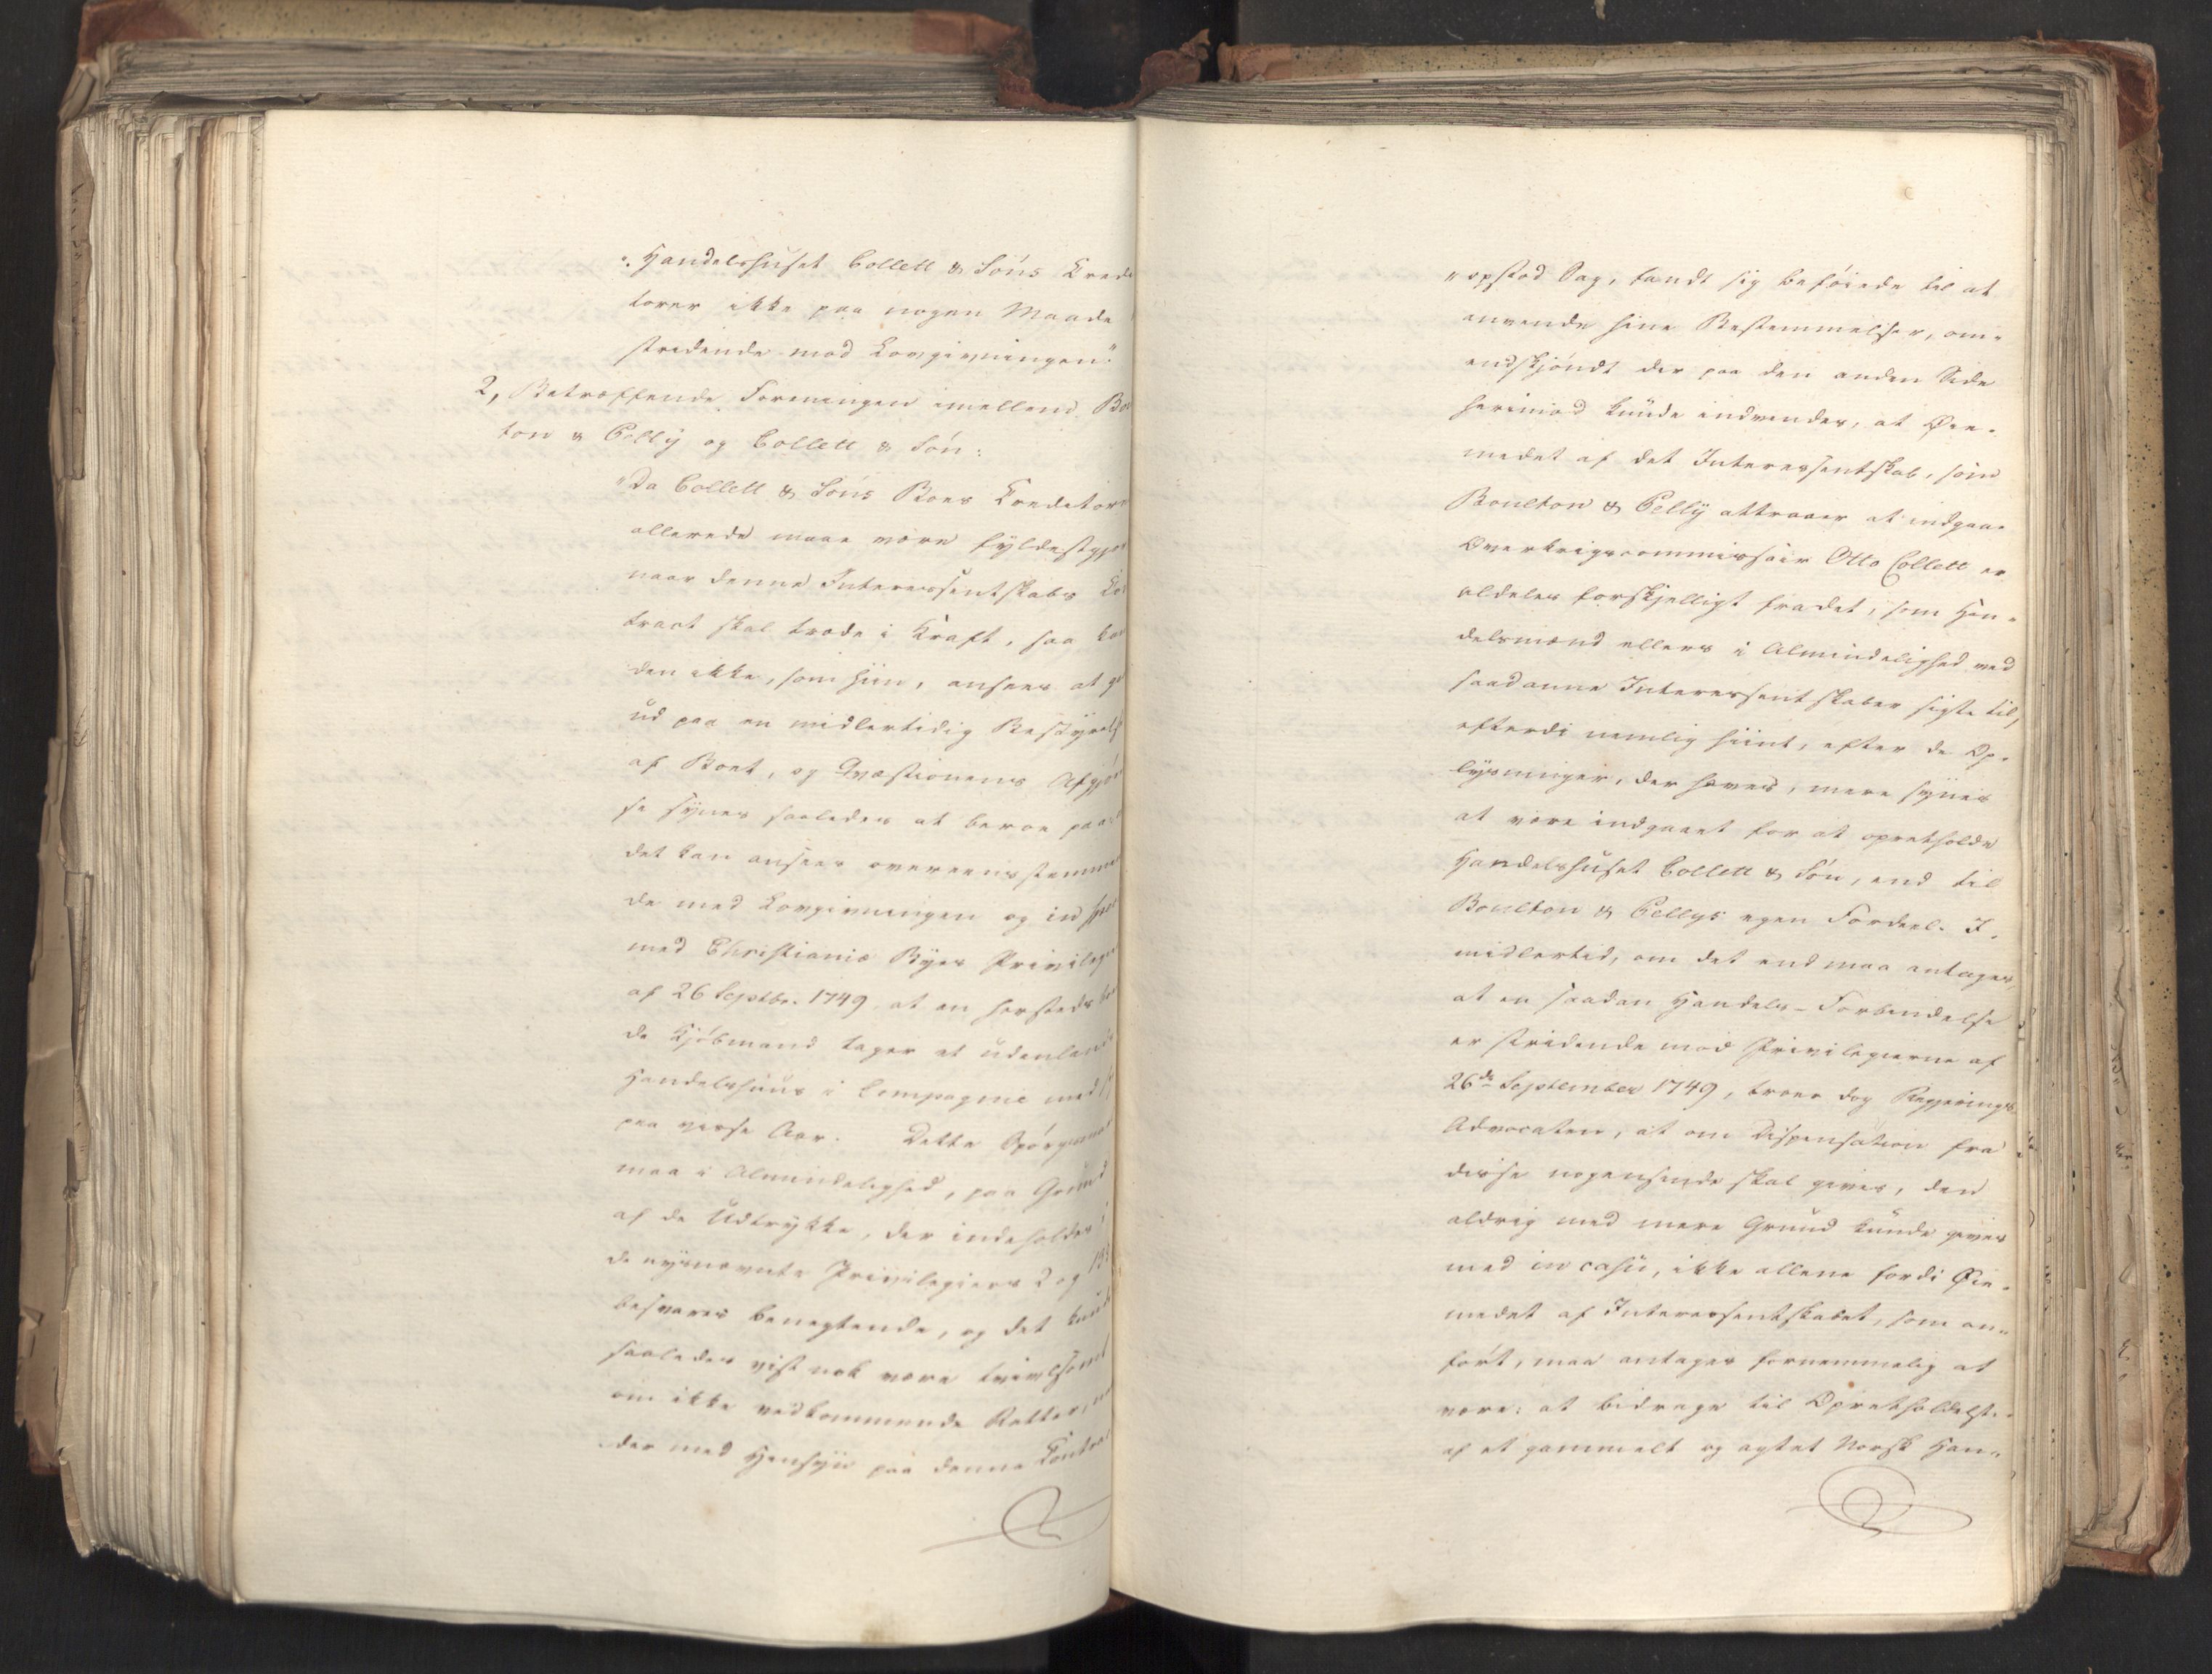 "Handelshuset Collett & Søns Kredi
torer ikke paa nogen Maade
stridende mod Lovgivningen."
2, Betræffende Foreningen imellem Bo
ton & Pelly og Collett & Søn:
"Da Collett & Søns Boes Kreditore
allerede maae være fyldestgjor
naar denne Interessentskabs Ko
tract skal træde i Kraft, saa kan
den ikke, som hiin, ansees at ga
ud paa en midlertidig Bestyrelse
af Boet, og Qvæstionens Afgjørel
se synes saaledes at beroe paa: 
det kan ansees overeensstemmen
de med Lovgivningen og in spec
med Christiania Byes Privilegier
af 26 Septbr. 1749, at en hersteds boe
de Kjøbmand tager et udenlands
Handelshuus i Compagnie med 
paa visse Aar. Dette Spørgsmaal
maa i Almindelighed, paa Grund
af de Udtrykke, der indeholdes i
de nysnævnte Privilegiers 2 og 13
besvares benegtende, og det kunde
saaledes vist nok være tvivlsomt
om ikke vedkommende Retter,
der med Hensyn paa denne Contrac
"opstod Sag, fandt sig beføiede til at
anvende hine Bestemmelser, om-
endskjøndt der paa den anden Side
herimod kunde indvendes, at Øie-
medet af det Interessentskab, som
Boulton & Pelly attraaer at indgaae
Overkrigscommissair Otto Collett er
aldeles forskjelligt fra det, som Han-
delsmænd ellers i Almindelighed ved
saadanne Interessentskaber sigte til,
efterdi nemlig hiint, efter de Op-
lysninger, der haves, mere synes
at være indgaaet for at opretholde
Handelshuset Collett & Søn, end til
Boulton & Pellys egen Fordeel. I-
midlertid, om det end maa antages,
at en saadan Handels-Forbindelse
er stridende mod Privilegierne af
26de September 1749, troer dog Regjerings
Advocaten, at om Dispensation fra
disse nogensinde skal gives, den
aldrig med mere Grund kunde gives
end in casu, ikke allene fordi Øie-
medet af Interessentskabet, som an-
ført, maa antages fornemmelig at
være: at bidrage til Opretholdelse
af et gammelt og agtet Norsk Han-